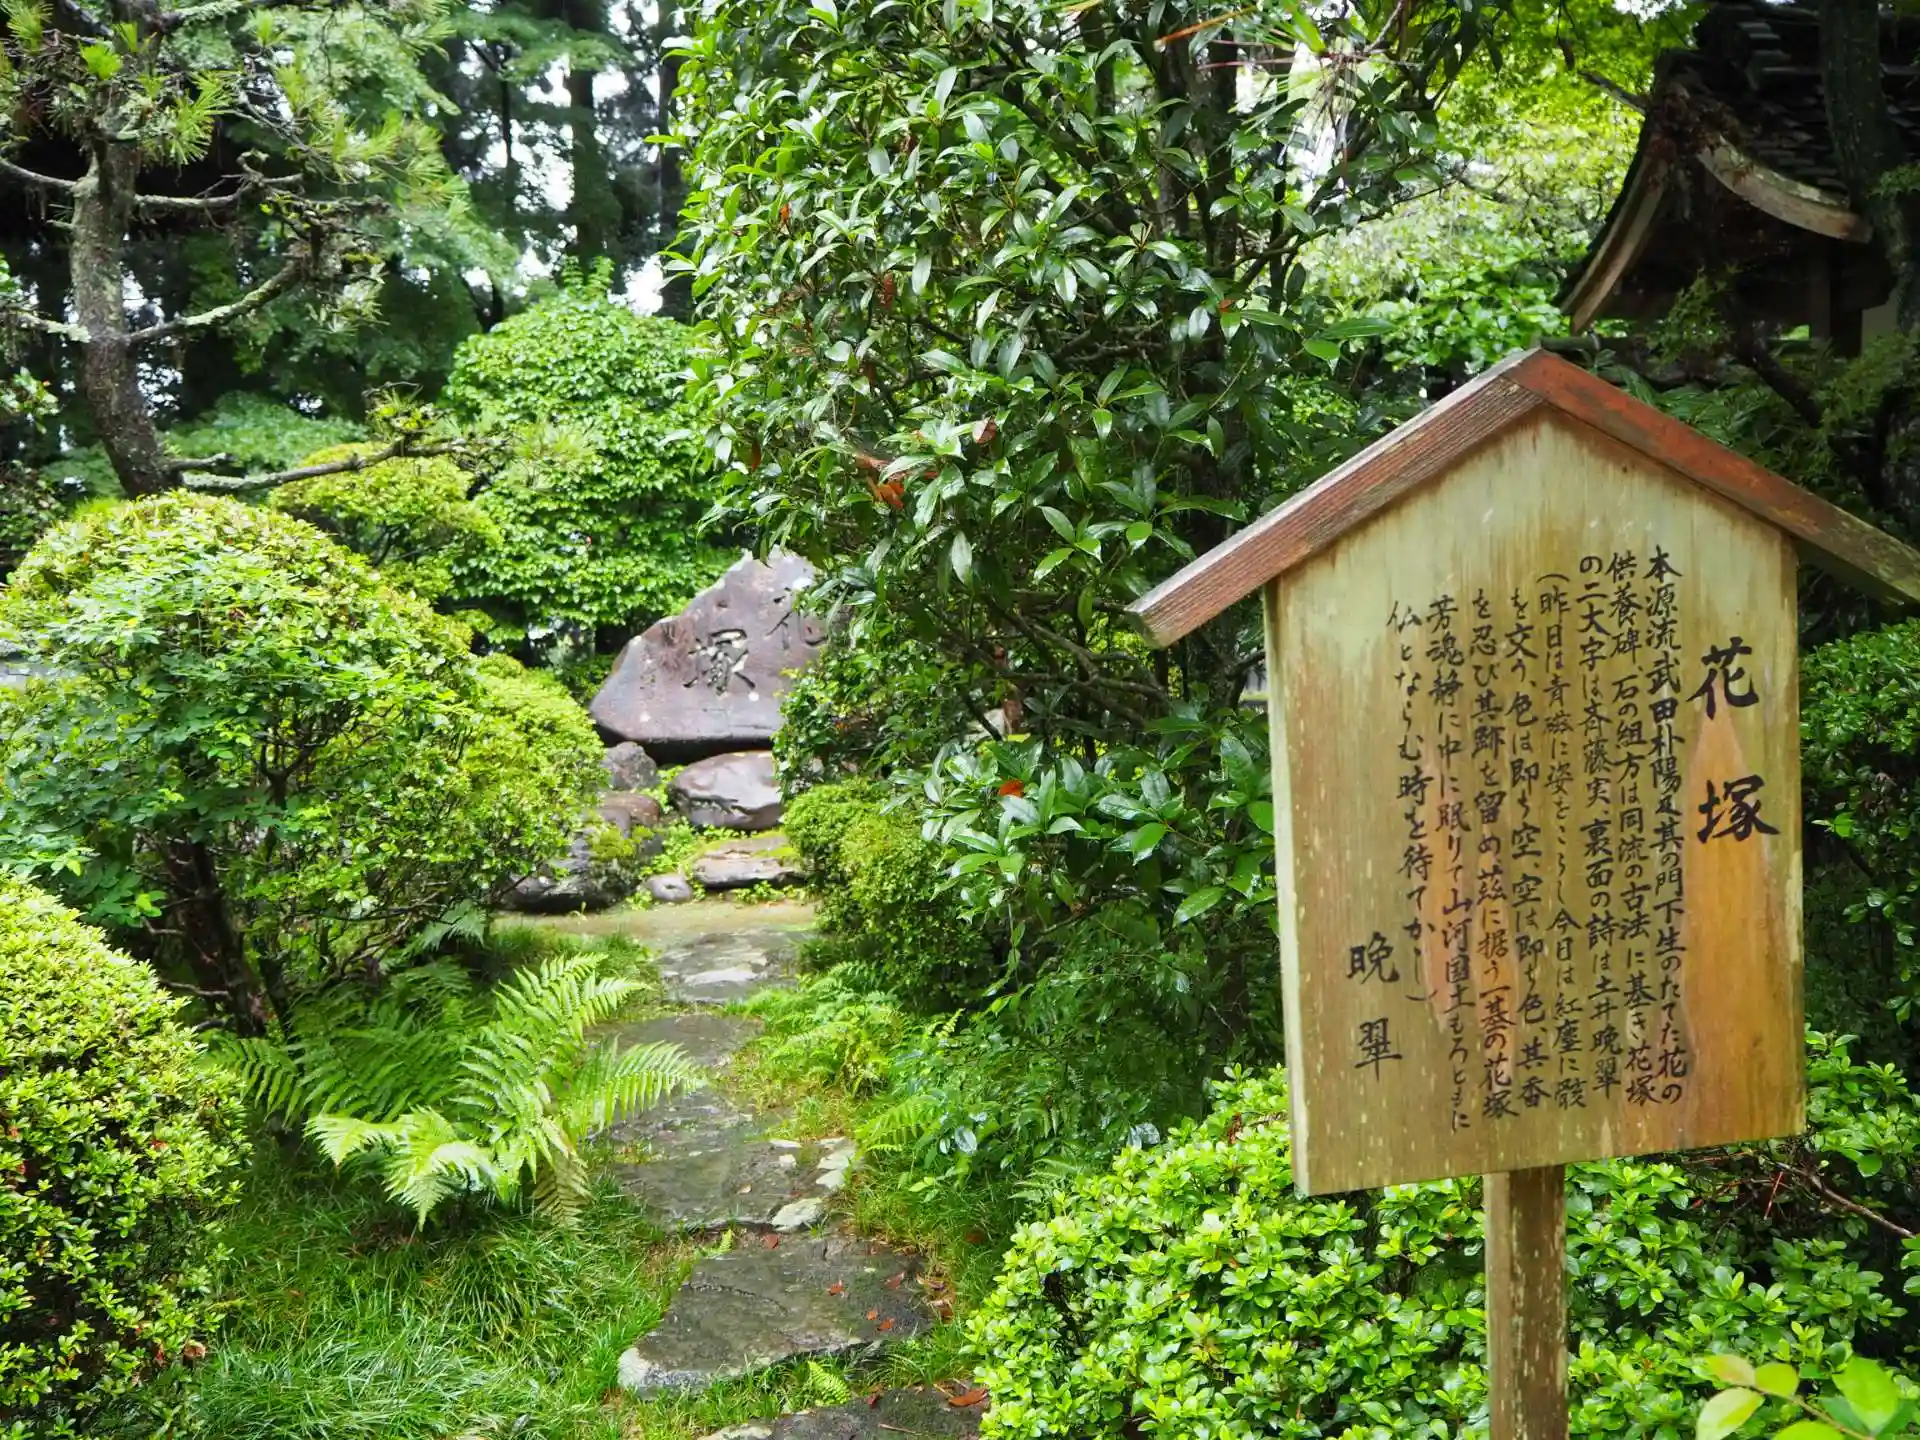 花塚
本源流武田朴陽及其の門下生のたてた花の
供養碑、石の組方は同流の古法に基き花塚
の二大字は斉藤実 裏面の詩は土井晩翠
(昨日は青瓷に姿をこらし今日は紅塵に骸
を交う、色は即ち空、空は即ち色、其香
を忍び其跡を留め、茲に据う一基の花塚
芳魂静に中に眠りて山河国土もろともに
仏とならむ時を待てかし)
晩翠
花
塚